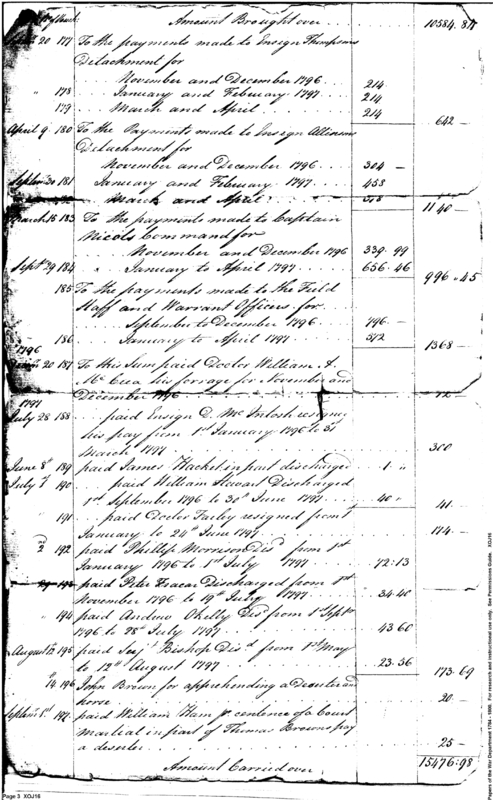 Amount Brought over 10584.84
20 177 To the payments made to Ensign Thompsons
Detachment for
November and December 1796 214
" 178 " January and February 1797 214
179 " March and April 214
642 —
April 9 180 To the Payments made to Ensign Allisons
Detachment for
November and December 1796 304 —
Septem 30 181 January and February 1797 458
March and April 378
1140 —
March 18 183 To the payments made to Captain
Nicols Command for
November and December 1796 339.99
Sept 29 184 " January to April 1797 656.46
996.45
185 To the payments made to the Field
Staff and Warrant Officers for
September to December 1796 796 —
186 January to April 1797 572
1368 —
1796
20 187 To this Sum paid Doctor William A.
McCrea his forrage for November and
December 1796 72
1797
July 28 188 paid Ensign D. McIntosh resigned
his pay from 1st January 1796 to 31
March 1797 300
June 8th 189 paid James Hacket in part discharged 1 "
July 1 190 paid William Stewart Discharged
1st September 1796 to 30th June 1797 40 "
41
" 191 paid Doctor Farley resigned from 1
January to 24th June 1797 174 —
2 192 paid Phillip Morrison Disd from 1st
January 1796 to 1st July 1797 72.13
29 193 paid Peter Fracar Discharged from 1st
November 1796 to 19th July 1797 34.40
" 194 paid Andrew OKelly Disd from 1st Septr
1796 to 28th July 1797 43.60
August 12 195 paid Serjt Bishop Disd from 1st May
to 12th August 1797 23.56
173.69
" 14 196 John Brown for apprehending a deserter and
horse 20 —
Septem 1st 197 paid William Ham pr centence of a Court
Martial in part of Thomas Browns pay
a deserter 25
Amount Carried over 15476.98
Page 3 XOJ16
Papers of the War Department 1784-1800. For research and instructional use only. See Permissions Guide. XOJ16